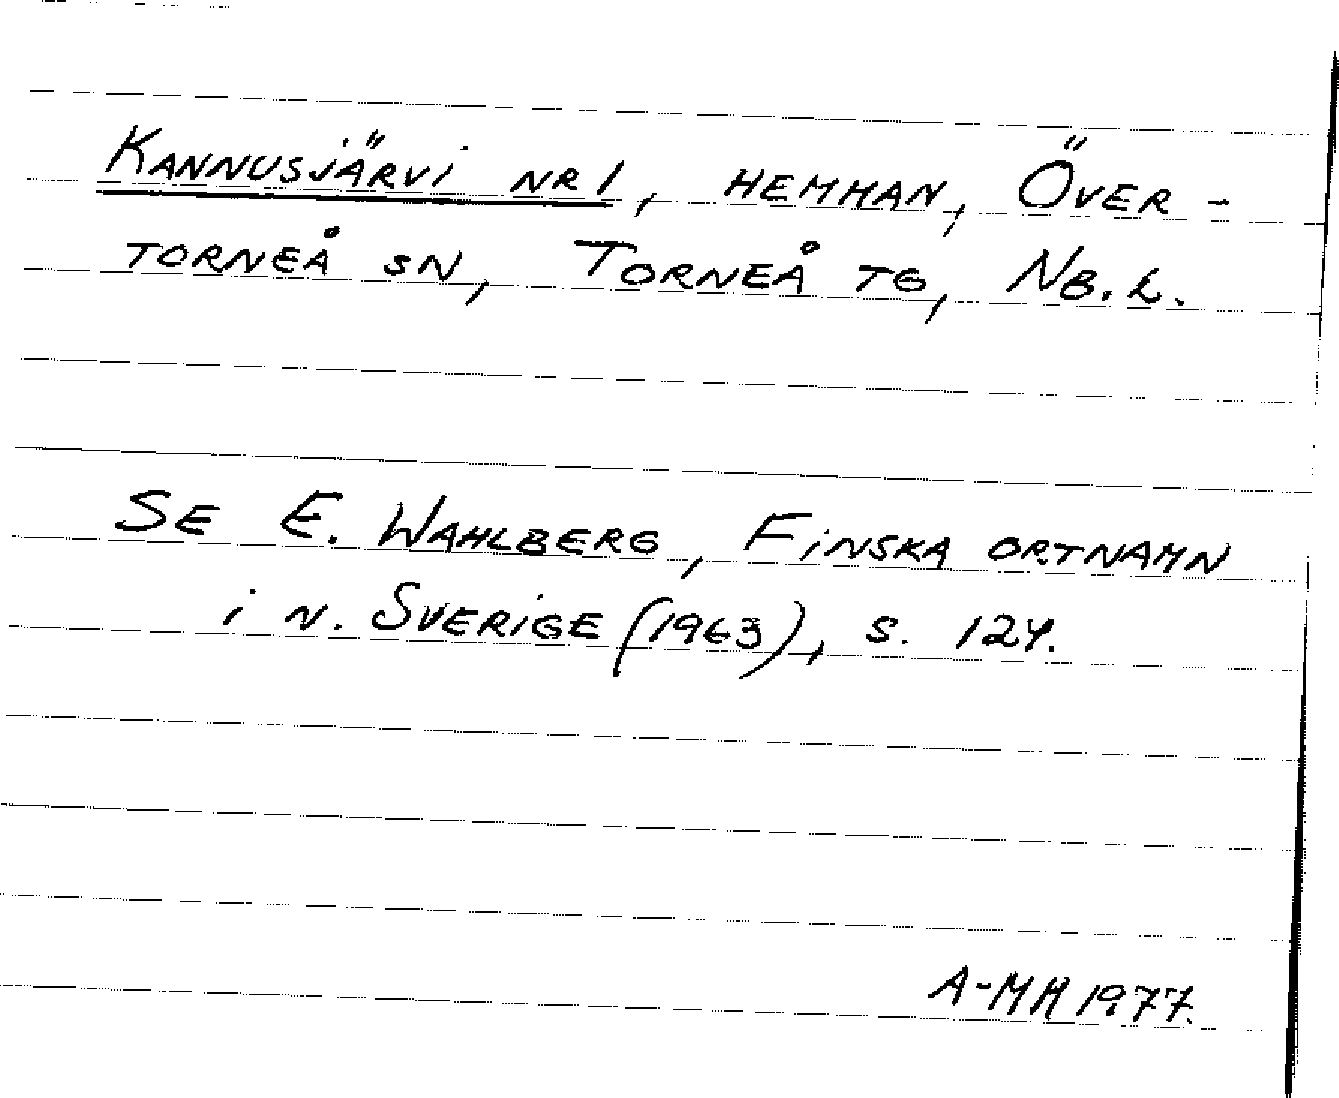 Kannusjärvi nr 1, hemman, Över-
torneå sn, Torneå tg, Nb. l.
Se E. Wahlberg, Finska ortnamn
i n. Sverige (1963), s. 124.
A-MH 1977.